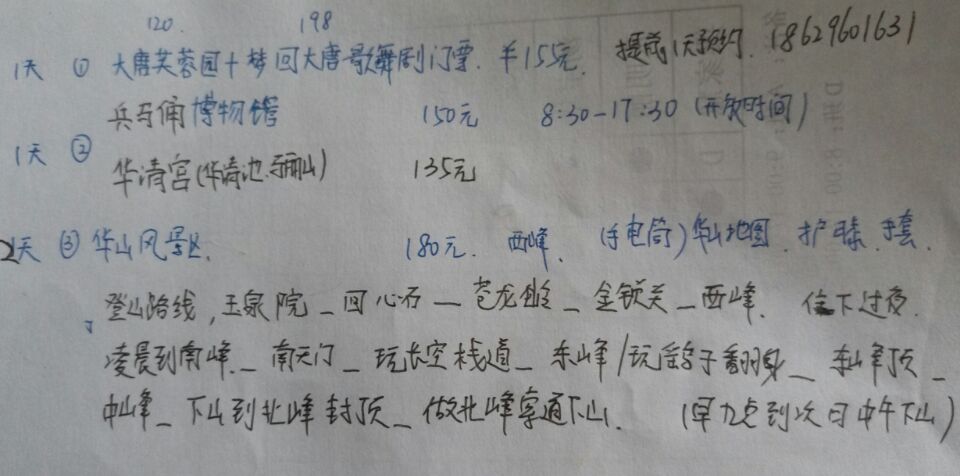 120. 198
1天 ① 大唐芙蓉园+梦回大唐歌舞剧门票. 半155元. 提前1天预约. 18629601631
兵马俑博物馆 150元 8:30-17:30 (开放时间)
1天 ②
华清宫(华清池.骊山) 135元
2天 ③ 华山风景区. 180元. 西峰 (手电筒)华山地图. 护膝. 手套.
登山路线,玉泉院_回心石—苍龙岭_金锁关_西峰. 住下过夜.
凌晨到南峰._南天门_玩长空栈道_东峰/玩鹞子翻身_东峰顶_
中峰_下山到北峰封顶_做北峰索道下山. (早九点到次日中午下山)